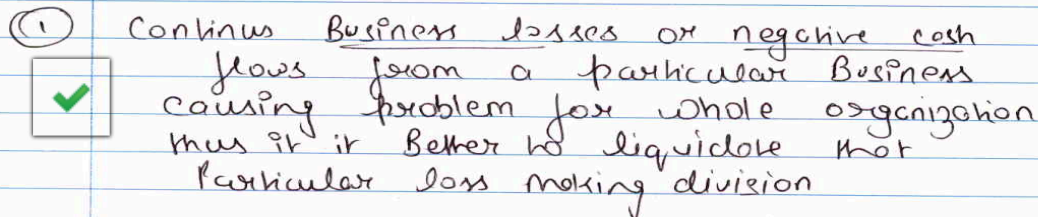 ① Continus Business losses or negative cash
flows from a particular Business
causing problem for whole organization
thus it it Better to liquidate that
Particular loss making division